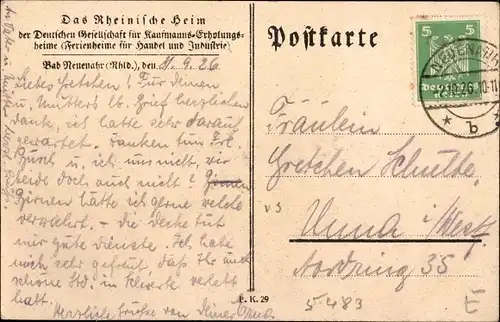 Das Rheinische Heim
der Deutschen Gesellschaft für Kaufmanns-Erholungs-
heime (Ferienheime für Handel und Industrie)
Bad Neuenahr (Rhld.), den 21.9.26
Liebes Gretchen! Für Deinen
u. Mutters lb. Brief herzlichen
Dank, ich hatte sehr darauf
gewartet. Danken tun Frl.
u. ich uns nicht, wir
beide doch auch nicht!
Birnen hätte ich gerne welche
verwahrt – die Decke tut
mir gute Dienste. Ich habe
mich sehr gefreut, daß Ihr auch
schöne Std. in Schwerte verlebt
habt.
Herzliche Grüße von Deiner
Postkarte
5 5
Deutsches
Reich
b
Fräulein
Gretchen Schulte
Unna i/West.
Nordring 35
P. K. 29
5483
E